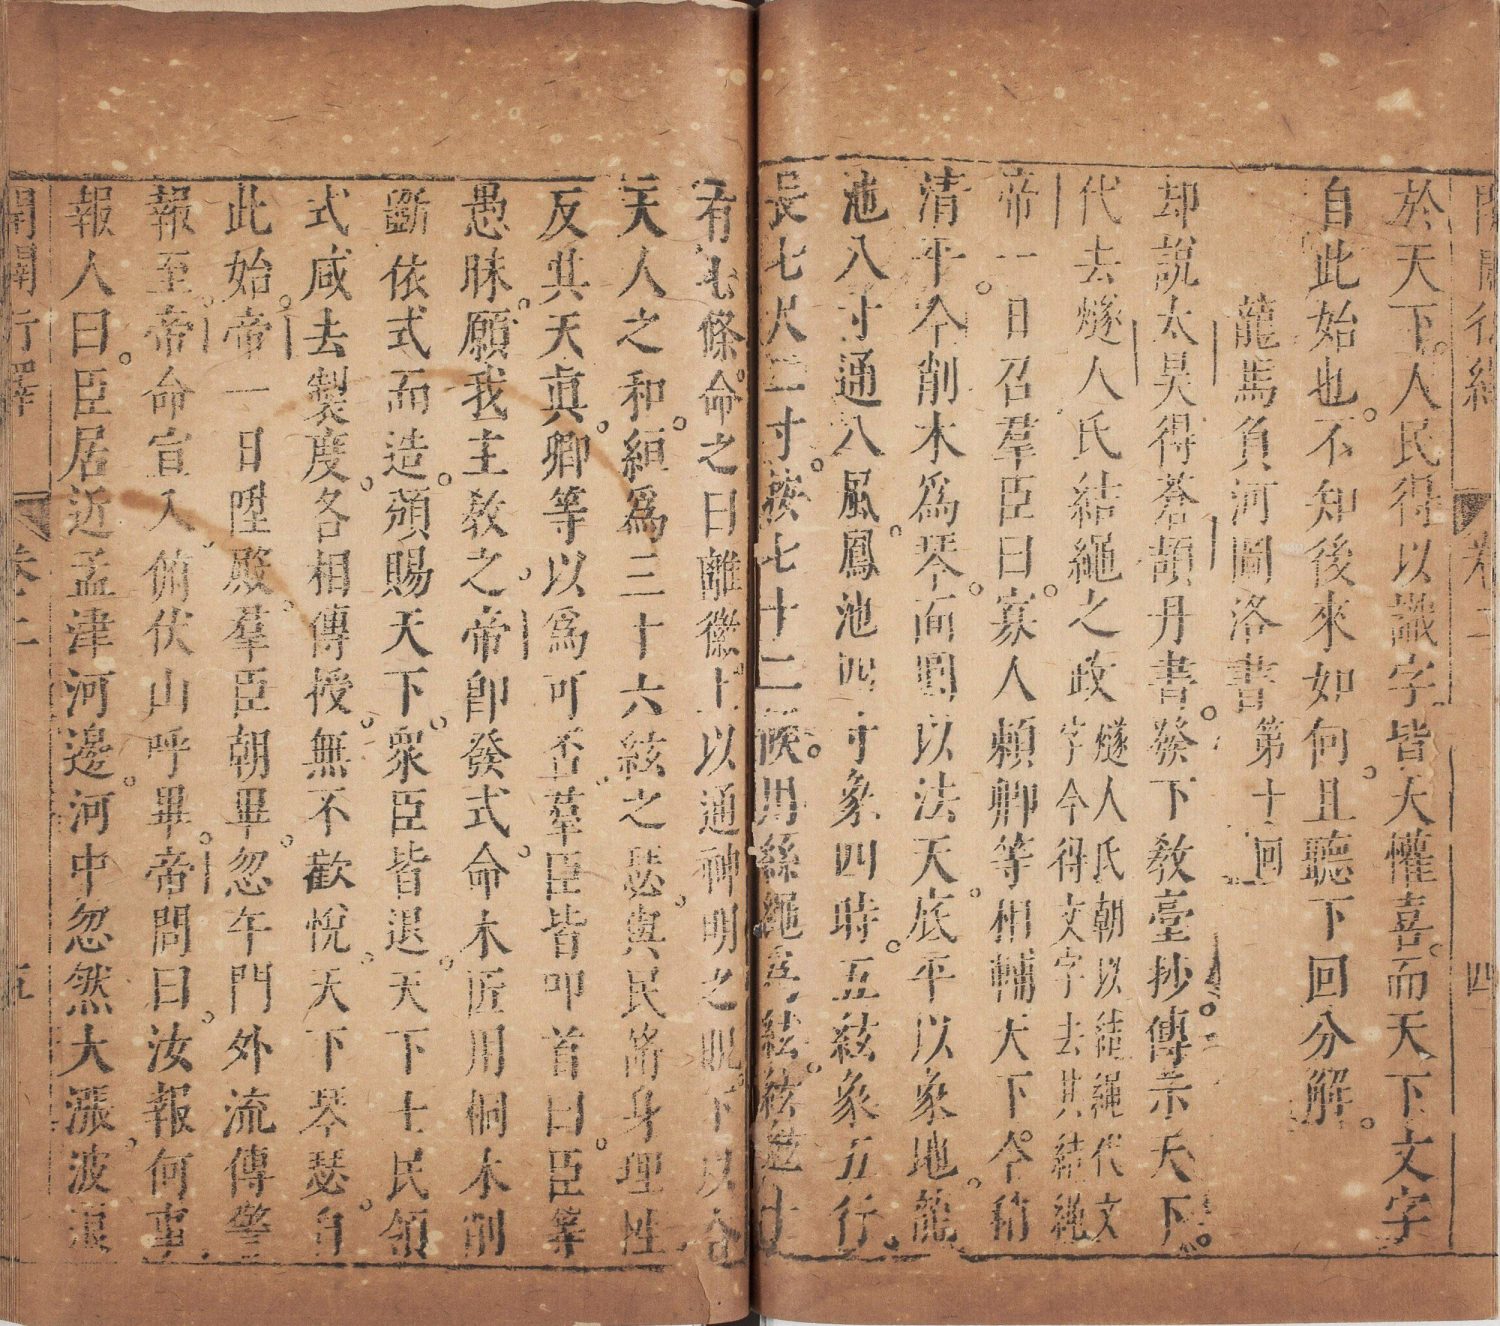 開闢衍繹 卷二 四
於天下。人民得以識字。皆大懽喜。而天下文字
自此始也。不知後來如何。且聽下回分解。
龍馬負河圖洛書 第十回
却說太昊得蒼頡丹書。發下教臺抄傳示天下。
代去燧人氏結繩之政 燧人氏朝以結繩代文字今得文字去其結繩
帝一日召羣臣曰。寡人賴卿等相輔。天下。今稍
清平。今削木為琴。面圓以法天。底平以象地。龍
池八寸通八風。鳳池四寸象四時。五絃象五行。
長七尺二寸。按七十二候。用絲繩為絃。絃
有七條。命之曰離徽。上以通神明之貺。下以合
天人之和。絙為三十六絃之瑟。與民脩身理性
反其天真。卿等以為可否。羣臣皆叩首曰。臣等
愚昧。願我主教之。帝即發式。命木匠用桐木削
斷依式而造。頒賜天下。衆臣皆退。天下士民領
式咸去製度。各相傳授。無不歡悅。天下琴瑟。自
此始。帝一日陞殿。羣臣朝畢。忽午門外流傳警
報至。帝命宣入。俯伏山呼畢。帝問曰。汝報何事。
報人曰。臣居近孟津河邊。河中忽然大漲。波滾
開闢衍繹 卷二 五